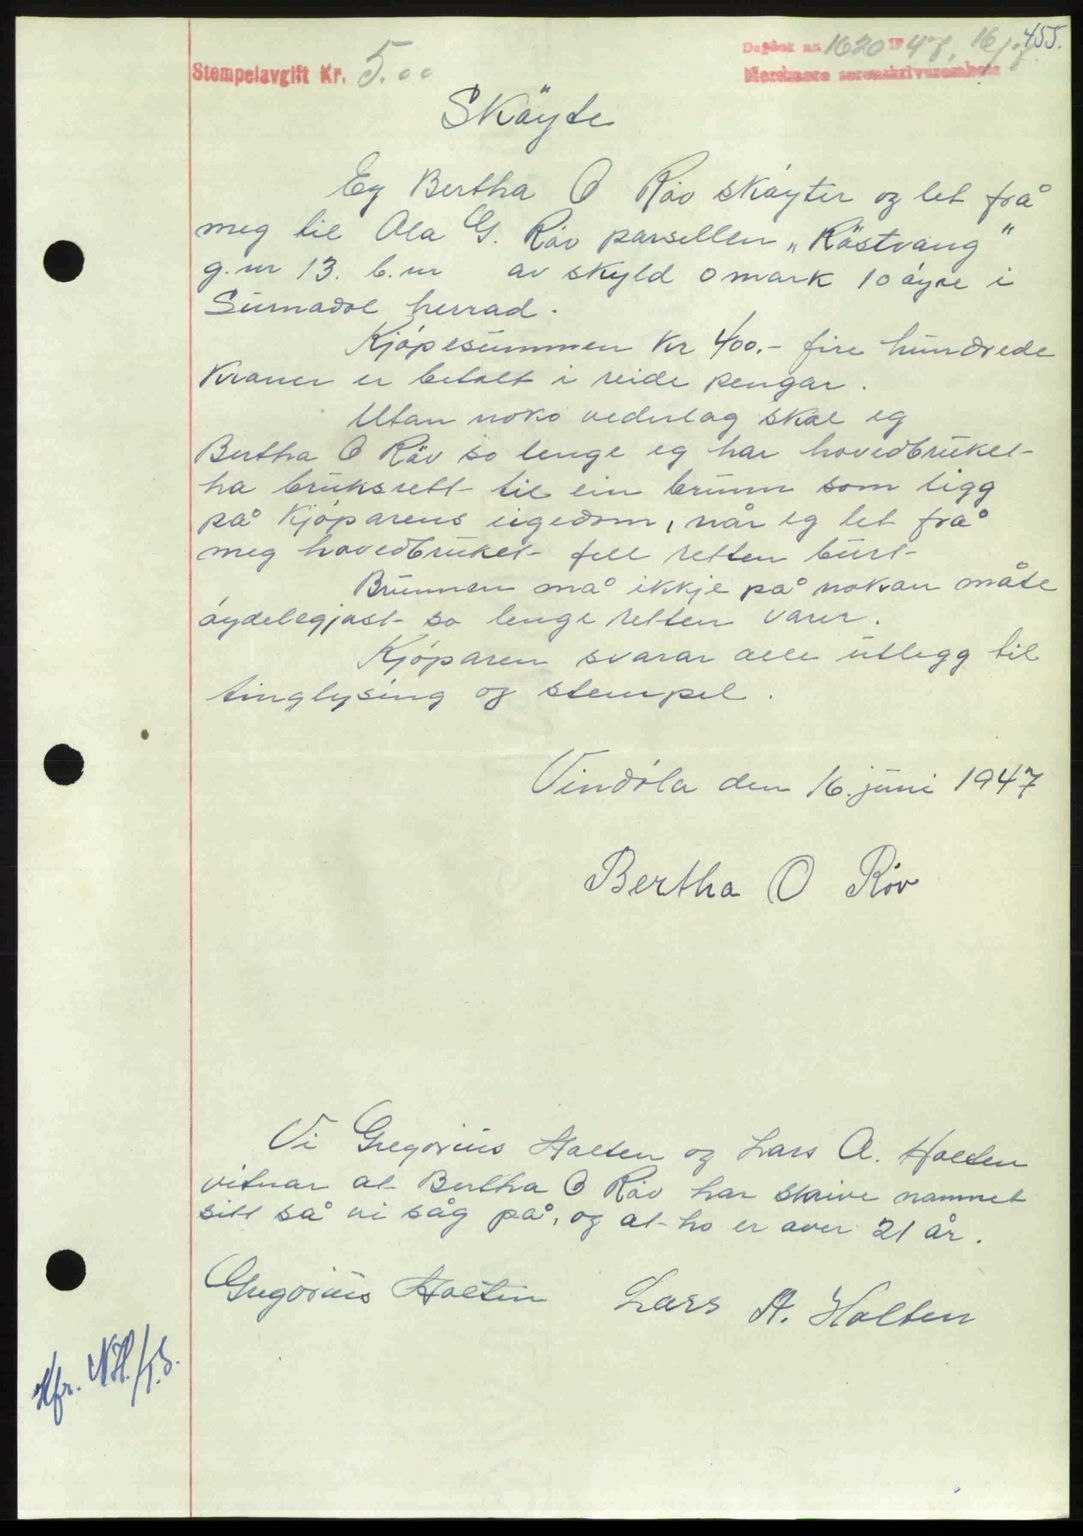 455.
Dagbok nr 1620 1947, 16/7
Stempelavgift Kr. 5.00
Nordmøre sorenskrivarembete
Skøyte
Eg Bertha O Røv skøyter og let frå
meg til Ola G. Røv parsellen „Røstvang”
g. nr 13. b. nr av skyld 0 mark 10 øyre i
Surnadal herrad.
Kjøpesummen kr 400.- fire hundrede
kroner er betalt i reide pengar.
Utan noko vederlag skal eg
Bertha O Røv so lenge eg har hovedbruket
ha bruksrett til ein brunn som ligg
på kjøparens eigedom, når eg let frå
meg hovedbruket fell retten burt
Brunnen må ikkje på nokon måte
øydeleggjast so lenge retten varer.
Kjøparen svarar alle utlegg til
tinglysing og stempel.
Vindøla den 16. juni 1947
Bertha O Røv
Vi Gregorius Holten og Lars A. Holten
vitnar at Bertha O Røv har skrive namnet
sitt så vi såg på, og at ho er over 21 år.
Gregorius Holten Lars A. Holten
Kfr. NH./